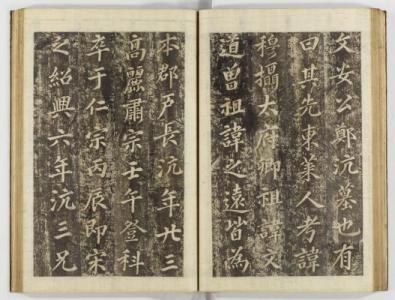 文安公鄭沆墓也有
曰其先東萊人考諱
穆攝大府卿祖諱文
道曽祖諱之遠皆為
本郡戶長沆年廿三
高麗肅宗壬午登科
卒于仁宗丙辰即宋
之紹興六年沆三兄